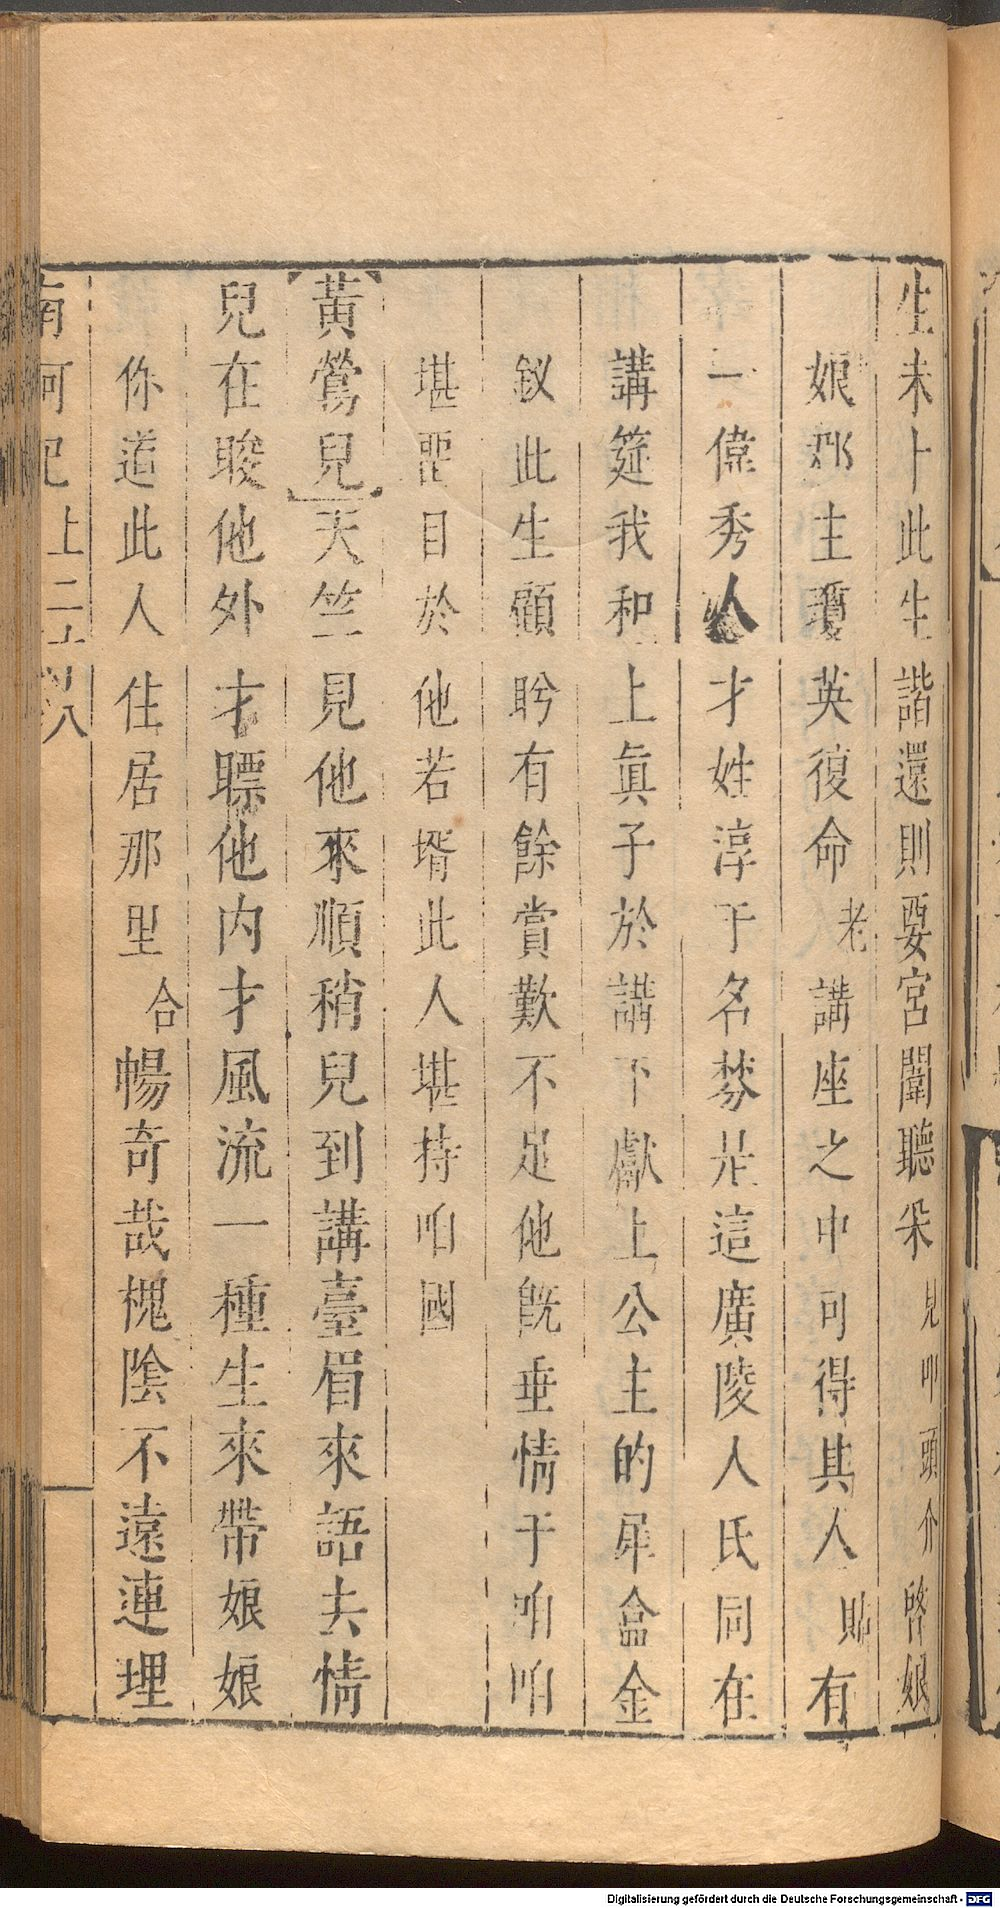 生未卜此生諧還則要宮闈聽采見叩頭介啓娘
娘郡主瓊英復命老講座之中可得其人貼有
一偉秀人才姓淳于名棼是這廣陵人氏同在
講筵我和上眞子於講下獻上公主的犀盒金
釵此生顧盻有餘賞歎不足他旣垂情于咱咱
堪罜目於他若壻此人堪持咱國
【黃鶯兒】天竺見他來順稍兒到講臺眉來語去情
兒在睃他外才瞟他内才風流一種生來帶娘娘
你道此人住居那里合暢奇哉槐陰不遠連理
南柯記上二十 八
Digitalisierung gefördert durch die Deutsche Forschungsgemeinschaft - DFG